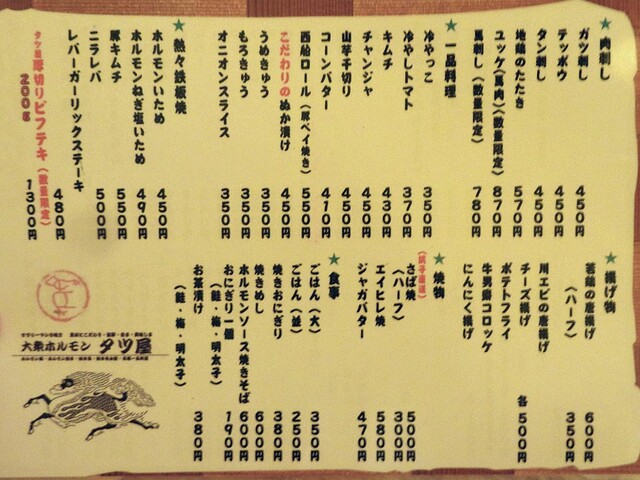 ★肉刺し
ガツ刺し 450円
テッポウ 450円
タン刺し 450円
地鶏のたたき 570円
ユッケ(馬肉)(数量限定) 870円
馬刺し(数量限定) 780円
★一品料理
冷やっこ 350円
冷やしトマト 370円
キムチ 430円
チャンジャ 450円
山芋千切り 450円
コーンバター 410円
西船ロール(豚ペイ焼き) 550円
こだわりのぬか漬け 450円
うめきゅう 350円
もろきゅう 350円
オニオンスライス 350円
★熱々鉄板焼
ホルモンいため 450円
ホルモンねぎ塩いため 490円
豚キムチ 550円
ニラレバ 500円
レバーガーリックステーキ 480円
タツ屋厚切りビフテキ(数量限定)
200g 1300円
★揚げ物
若鶏の唐揚げ 600円
(ハーフ) 350円
川エビの唐揚げ
チーズ揚げ
ポテトフライ 各500円
牛男爵コロッケ
にんにく揚げ
★焼物
(銚子直送)
さば焼 500円
(ハーフ) 300円
エイヒレ焼 580円
ジャガバター 470円
★食事
ごはん(大) 350円
ごはん(並) 250円
焼きおにぎり 380円
焼きめし 600円
ホルモンソース焼きそば 600円
おにぎり一個 190円
(鮭・梅・明太子)
お茶漬け 380円
(鮭・梅・明太子)
大衆ホルモン タツ屋